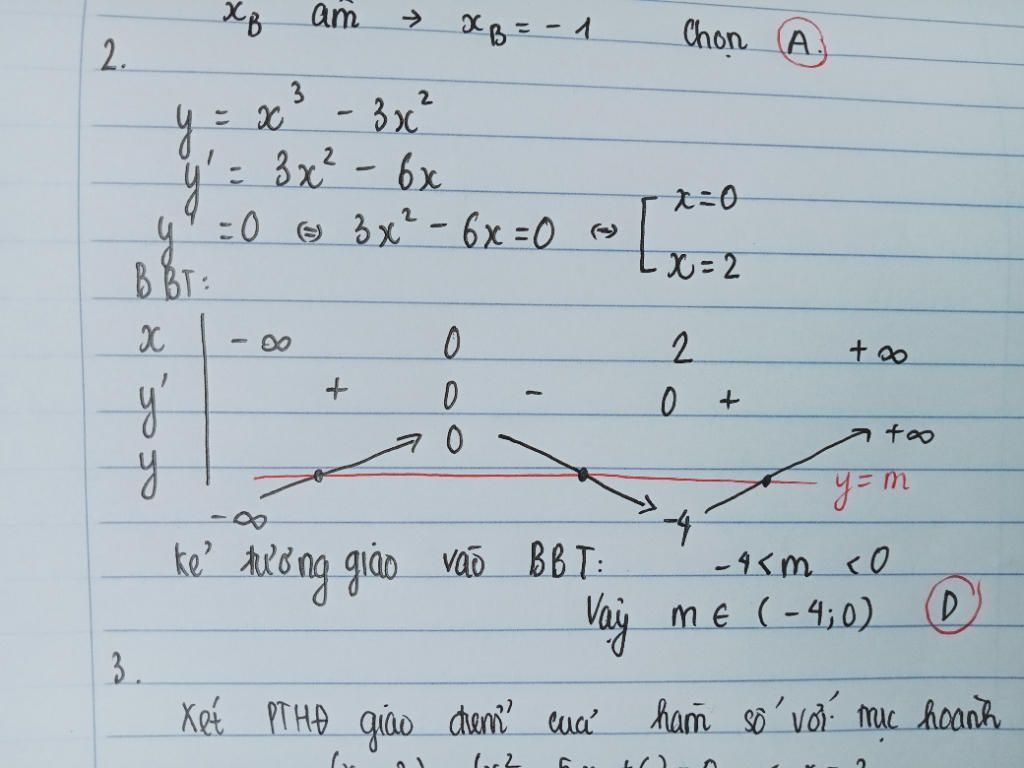 x_B âm → x_B = - 1 Chọn A.
2.
y = x³ - 3x²
y' = 3x² - 6x
y' = 0 ⇔ 3x² - 6x = 0 ⇔ [ x = 0
x = 2
BBT:
x - ∞ 0 2 + ∞
y' + 0 - 0 +
y 0 +∞
y = m
- ∞ -4
Kẻ tương giao vào BBT: -4 < m < 0
Vậy m ∈ ( - 4; 0) D
3.
Xét PTHĐ giao điểm của hàm số với trục hoành